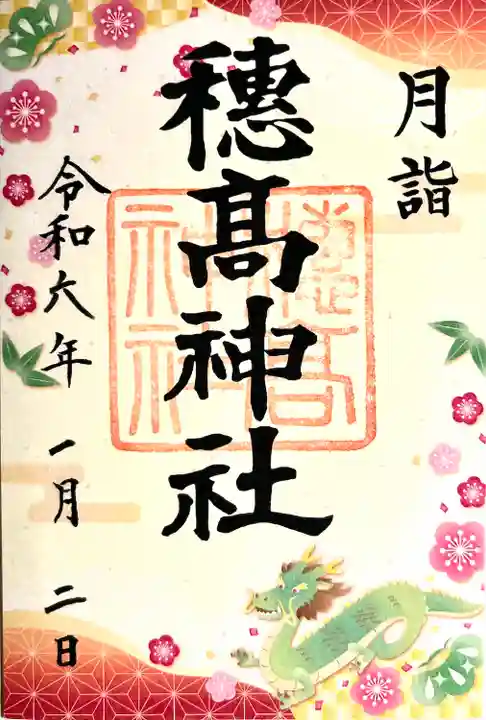 月詣
穗髙神社
穗髙
神社
令和六年 一月 二日